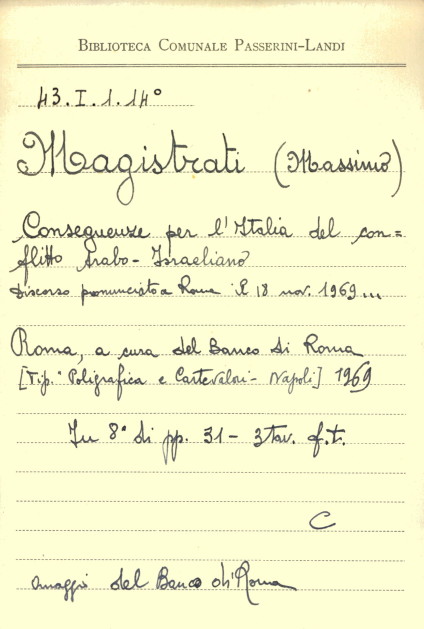 BIBLIOTECA COMUNALE PASSERINI-LANDI
43.I.1.14°
Magistrati (Massimo)
Conseguenze per l'Italia del con=
flitto Arabo-Israeliano
discorso pronunciato a Roma il 18 nov. 1969...
Roma, a cura del Banco di Roma
[Tip.ª Poligrafica e Cartevalori - Napoli] 1969
In 8° di pp. 31 - 3 tav. f.t.
C
omaggio del Banco di Roma